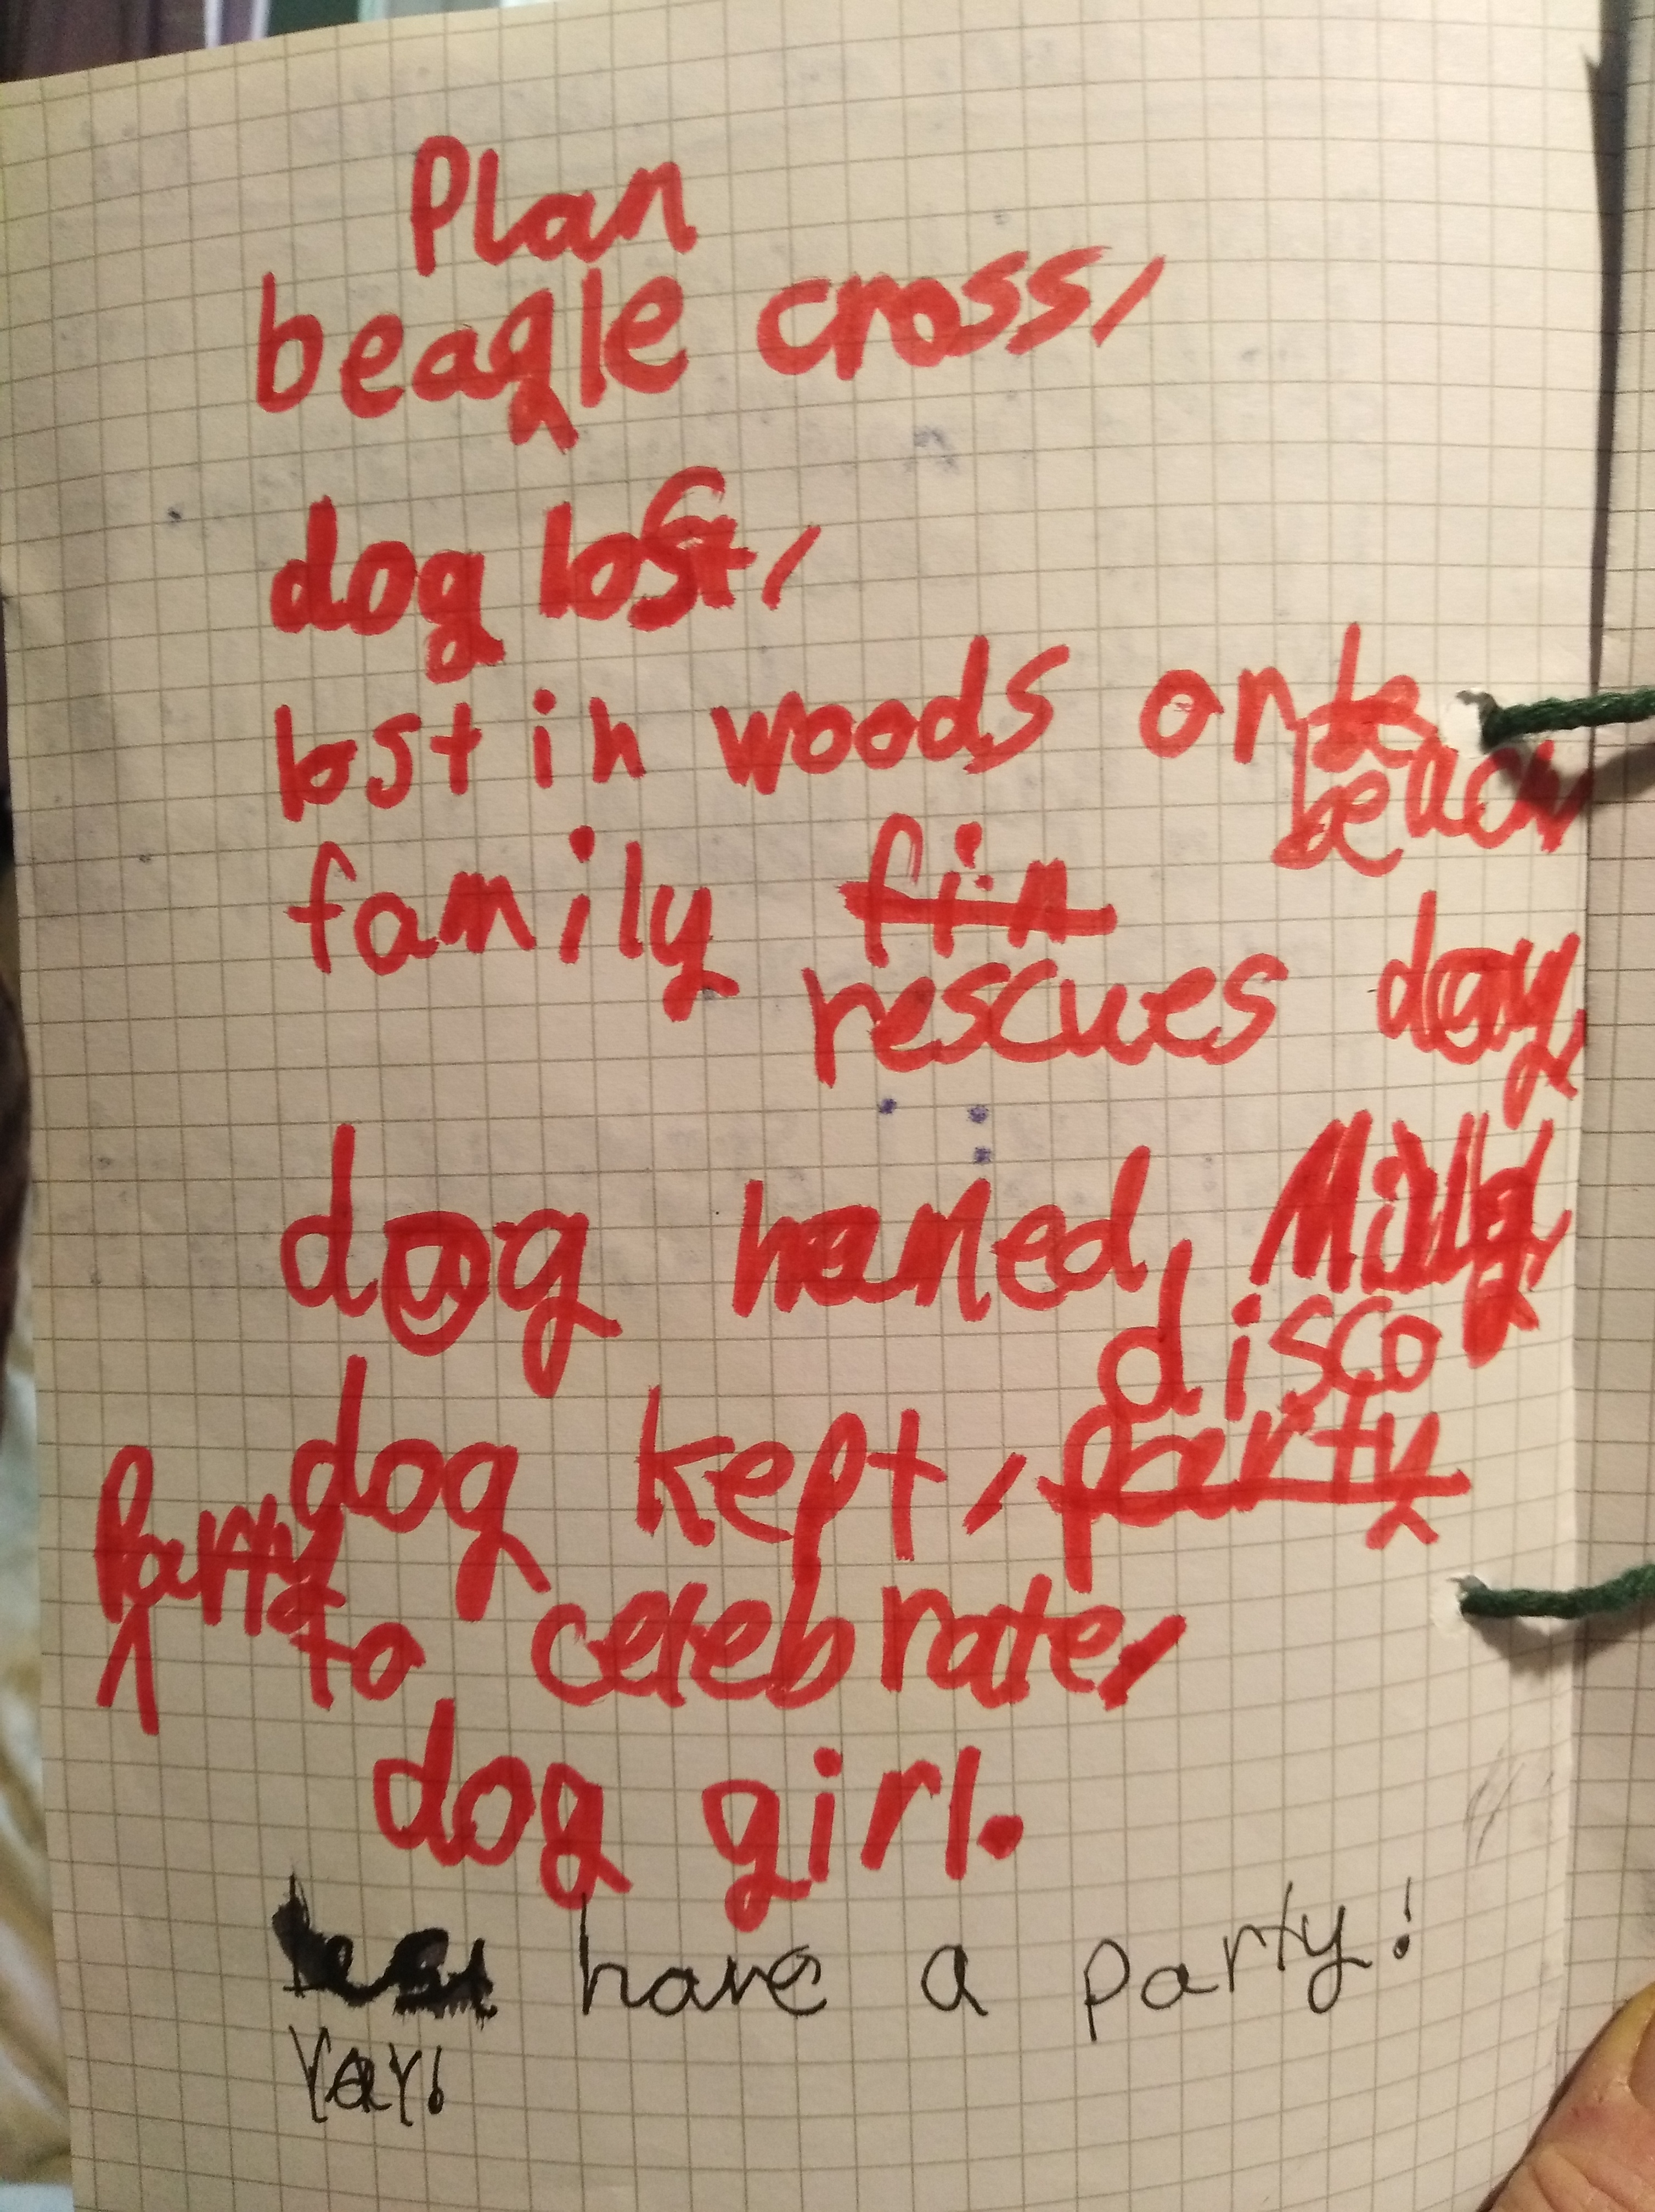 Plan
beagle cross,
dog lost,
lost in woods on te
beach
family fin
rescues dog,
dog named, Milly
disco
dog kept, party
Party
to celebrate,
dog girl.
have a party!
Yay!